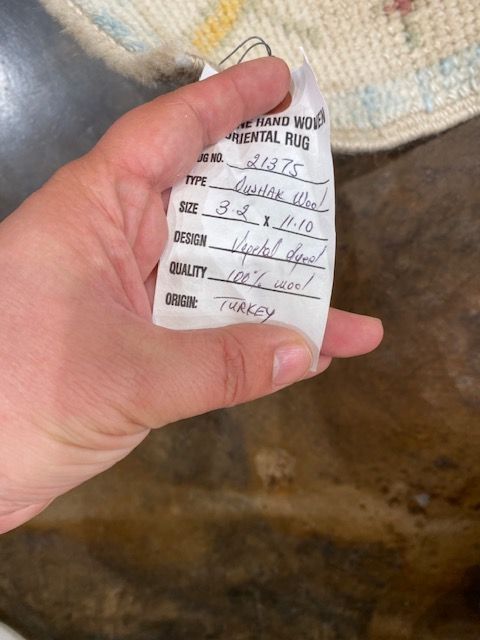 NE HAND WOVEN
ORIENTAL RUG
UG NO. 21375
TYPE OUSHAK Wool
SIZE 3-2 X 11-10
DESIGN Vegetal dyed
QUALITY 100% wool
ORIGIN: TURKEY